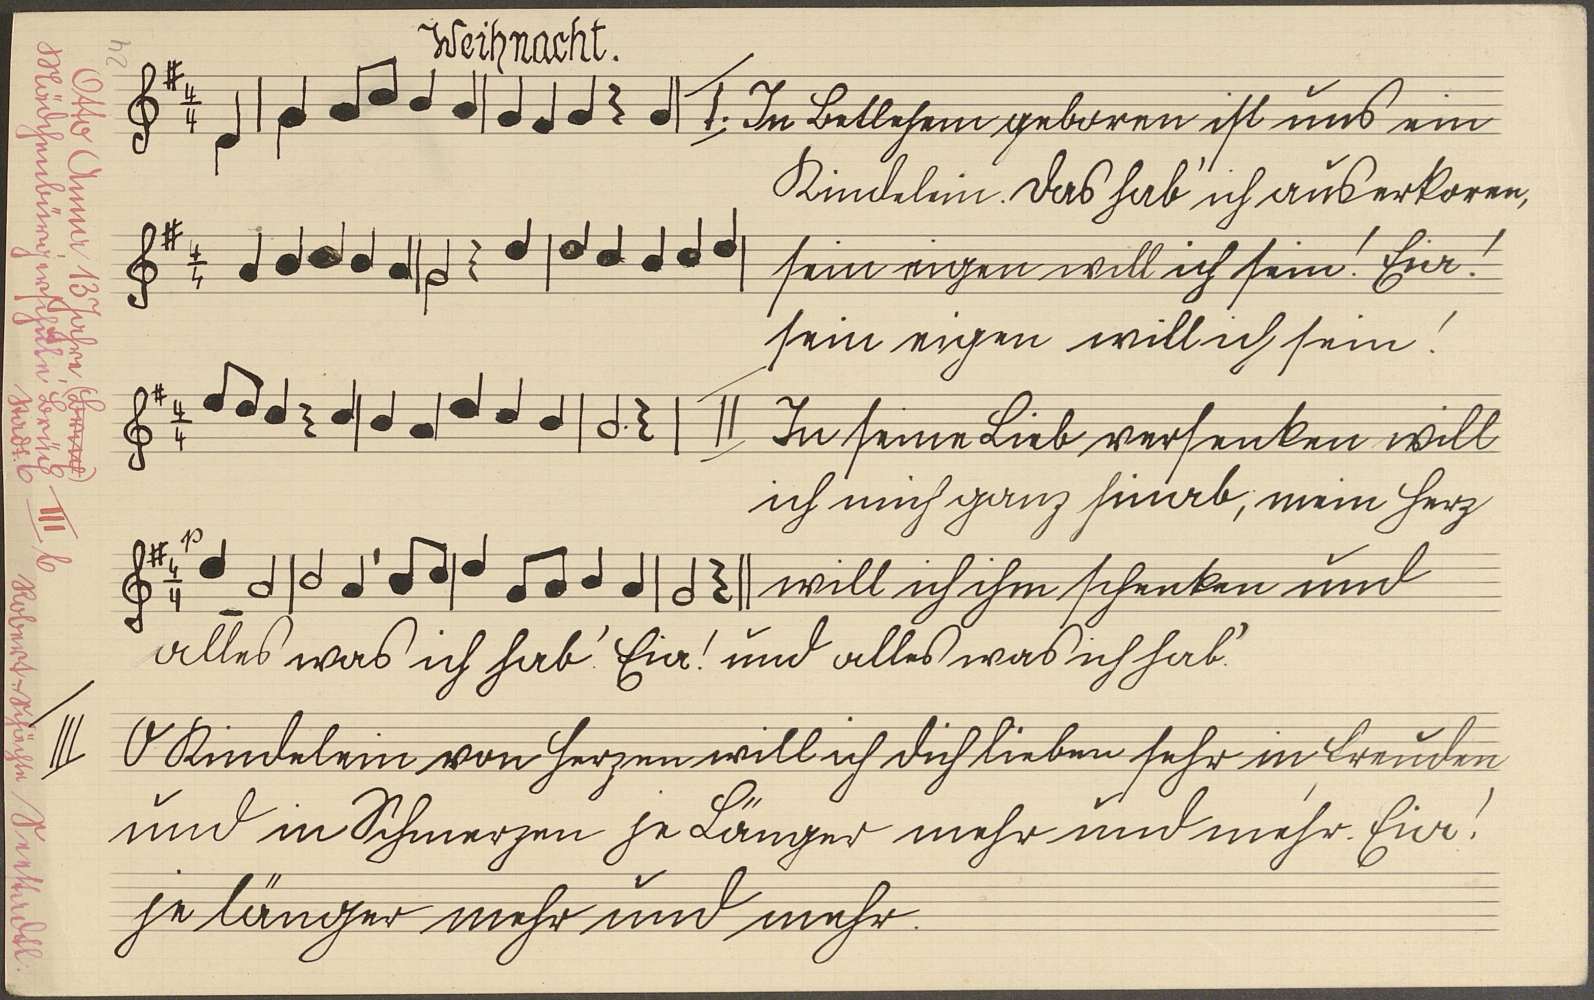 Weihnacht.
I. In Betlehem geboren ist uns ein
Kindelein. Das hab' ich auserkoren,
sein eigen will ich sein! Eia!
sein eigen will ich sein!
II In seine Lieb versenken will
ich mich ganz hinab; mein Herz
p
will ich ihm schenken und
alles was ich hab'. Eia! und alles was ich hab'.
III O Kindelein von Herzen will ich dich lieben sehr in Freuden
und in Schmerzen je Länger mehr und mehr. Eia!
je länger mehr und mehr.
42
Otto Anna 13 Jahre
Mädchenbürgerschule, Brüx III b